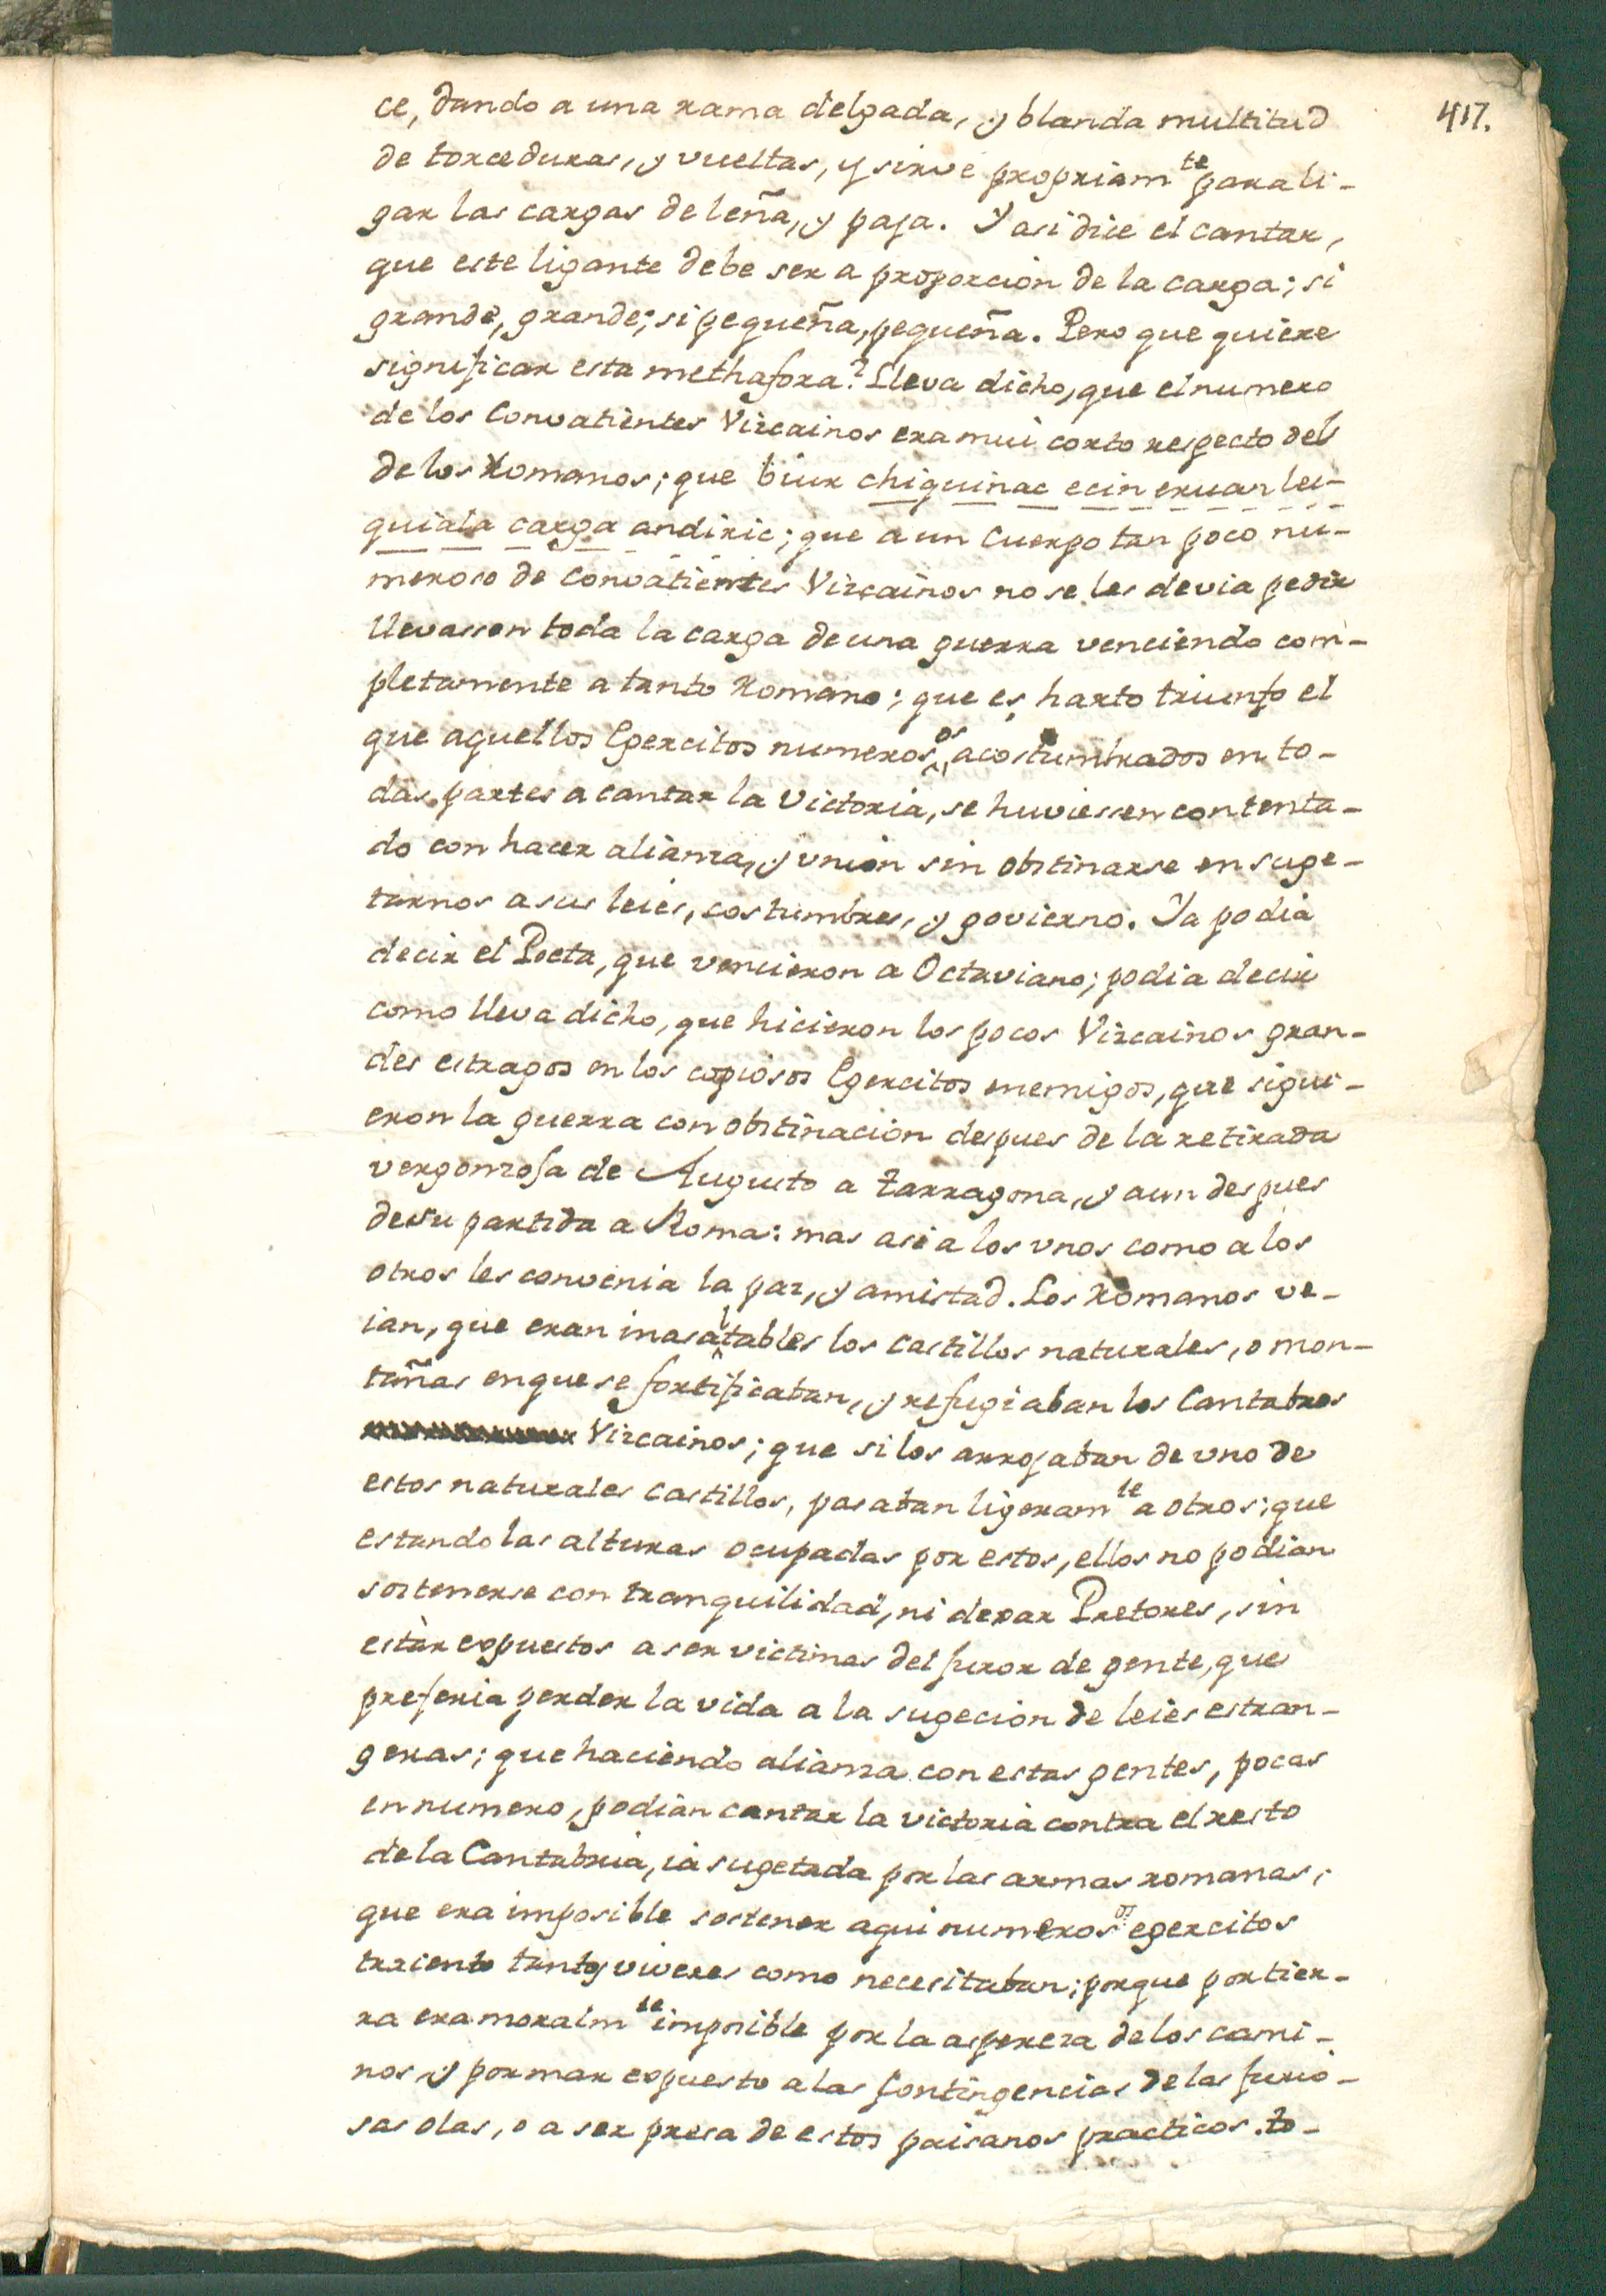 417.
ce, dando a una rama delgada, y blanda multitud
de torceduras, y vueltas, y sirve propriamte para li-
gar las cargas de leña, y paja. Y asi dice el cantar,
que este ligante debe ser a proporcion de la carga; si
grande, grande; si pequeña, pequeña. Pero que quiere
significar esta methafora? Lleva dicho, que el numero
de los Convatientes Vizcainos era mui corto respecto del
de los Romanos; que biur chiquinac ecin eruan lei-
quiala carga andiric; que a un Cuerpo tan poco nu-
meroso de convatientes Vizcainos no se les devia pedir
llevassen toda la carga de una guerra venciendo com-
pletamente a tanto Romano; que es harto triunfo el
que aquellos Egercitos numerosos acostumbrados en to-
das partes a cantar la Victoria, se huviessen contenta-
do con hacer alianza, y union sin obstinarse en suge-
tarnos a sus leies, costumbres, y govierno. Ya podia
decir el Poeta, que vencieron a Octaviano; podia decir
como lleva dicho, que hicieron los pocos Vizcainos gran-
des estragos en los copiosos Egercitos enemigos, que sigui-
eron la guerra con obstinacion despues de la retirada
vergonzosa de Augusto a Tarragona, y aun despues
de su partida a Roma: mas asi a los unos como a los
otros les convenia la paz, y amistad. Los Romanos ve-
ian, que eran inasaltables los castillos naturales, o mon-
tañas en que se fortificaban, y refugiaban los Cantabros
Vizcainos; que si los arrojaban de uno de
estos naturales castillos, pasaban ligeramte a otros; que
estando las alturas ocupadas por estos, ellos no podian
sostenerse con tranquilidad, ni dexar Pretores, sin
estàr expuestos a ser victimas del furor de gente, que
preferia perder la vida a la sugecion de leies estran-
geras; que haciendo alianza con estas gentes, pocas
en numero, podian cantar la victoria contra el resto
de la Cantabria, ia sugetada por las armas romanas;
que era imposible sostener aqui numerosos egercitos
traiento tantos viveres como necesitaban; porque por tier-
ra era moralmte imposible por la aspereza de los cami-
nos y por mar expuesto a las contingencias de las furio-
sas olas, o a ser presa de estos paisanos practicos. to-